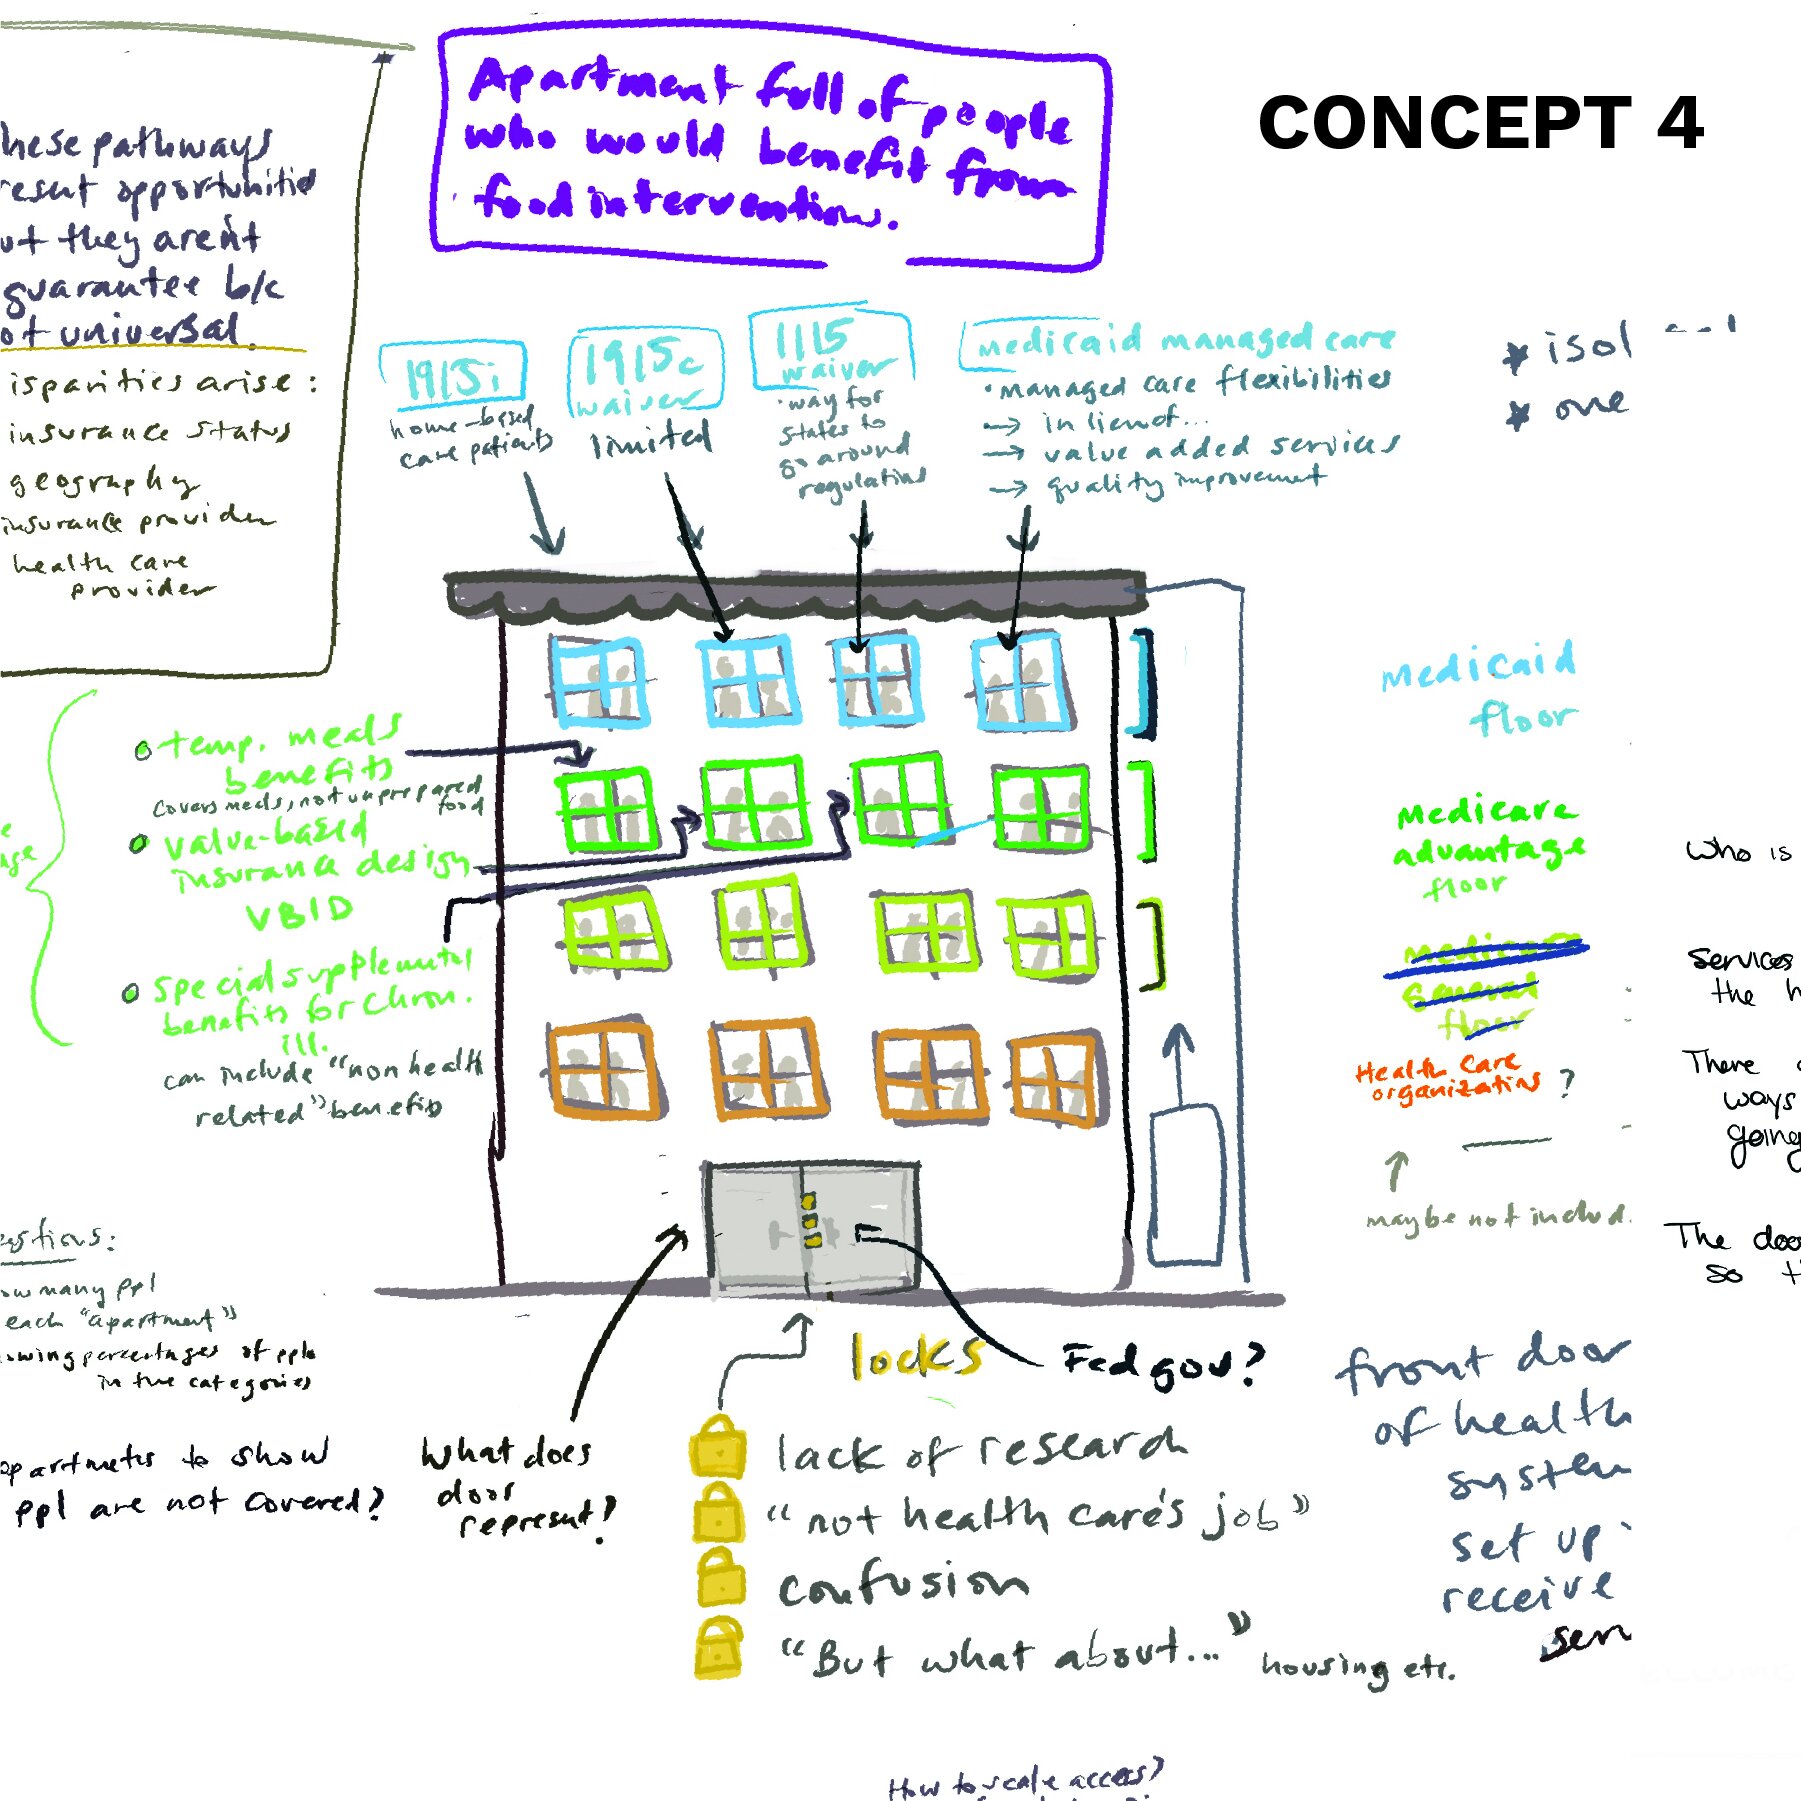 CONCEPT 4
Apartment full of people
who would benefit from
food interventions.
hese pathways
resent opportunities
ut they aren't
guarantee b/c
ot universal.
isparities arise:
insurance status
geography
insurance provider
health care
provider
1915i
home-based
care patients
1915c
waiver
limited
1115
waiver
·way for
states to
go around
regulations
medicaid managed care
·managed care flexibilities
→ in lieu of...
→ value added services
→ quality improvement
* isol
* one
temp. meals
benefits
covers meals, not unprepared
food
value-based
insurance design
VBID
special supplemental
benefits for chron.
ill.
can include "non health
related" benefits
medicaid
floor
medicare
advantage
floor
medicare
general
floor
Health Care
organizations ?
maybe not includ.
who is
services
the h
There
ways
going
The doo
so t
estions:
ow many ppl
each "apartment"
owing percentages of ppl
in the categories
apartments to show
ppl are not covered?
what does
door
represent?
locks
Fed gov?
lack of research
"not health care's job"
confusion
"But what about..." housing etc.
front door
of health
system
set up
receive
serv
How to scale access?